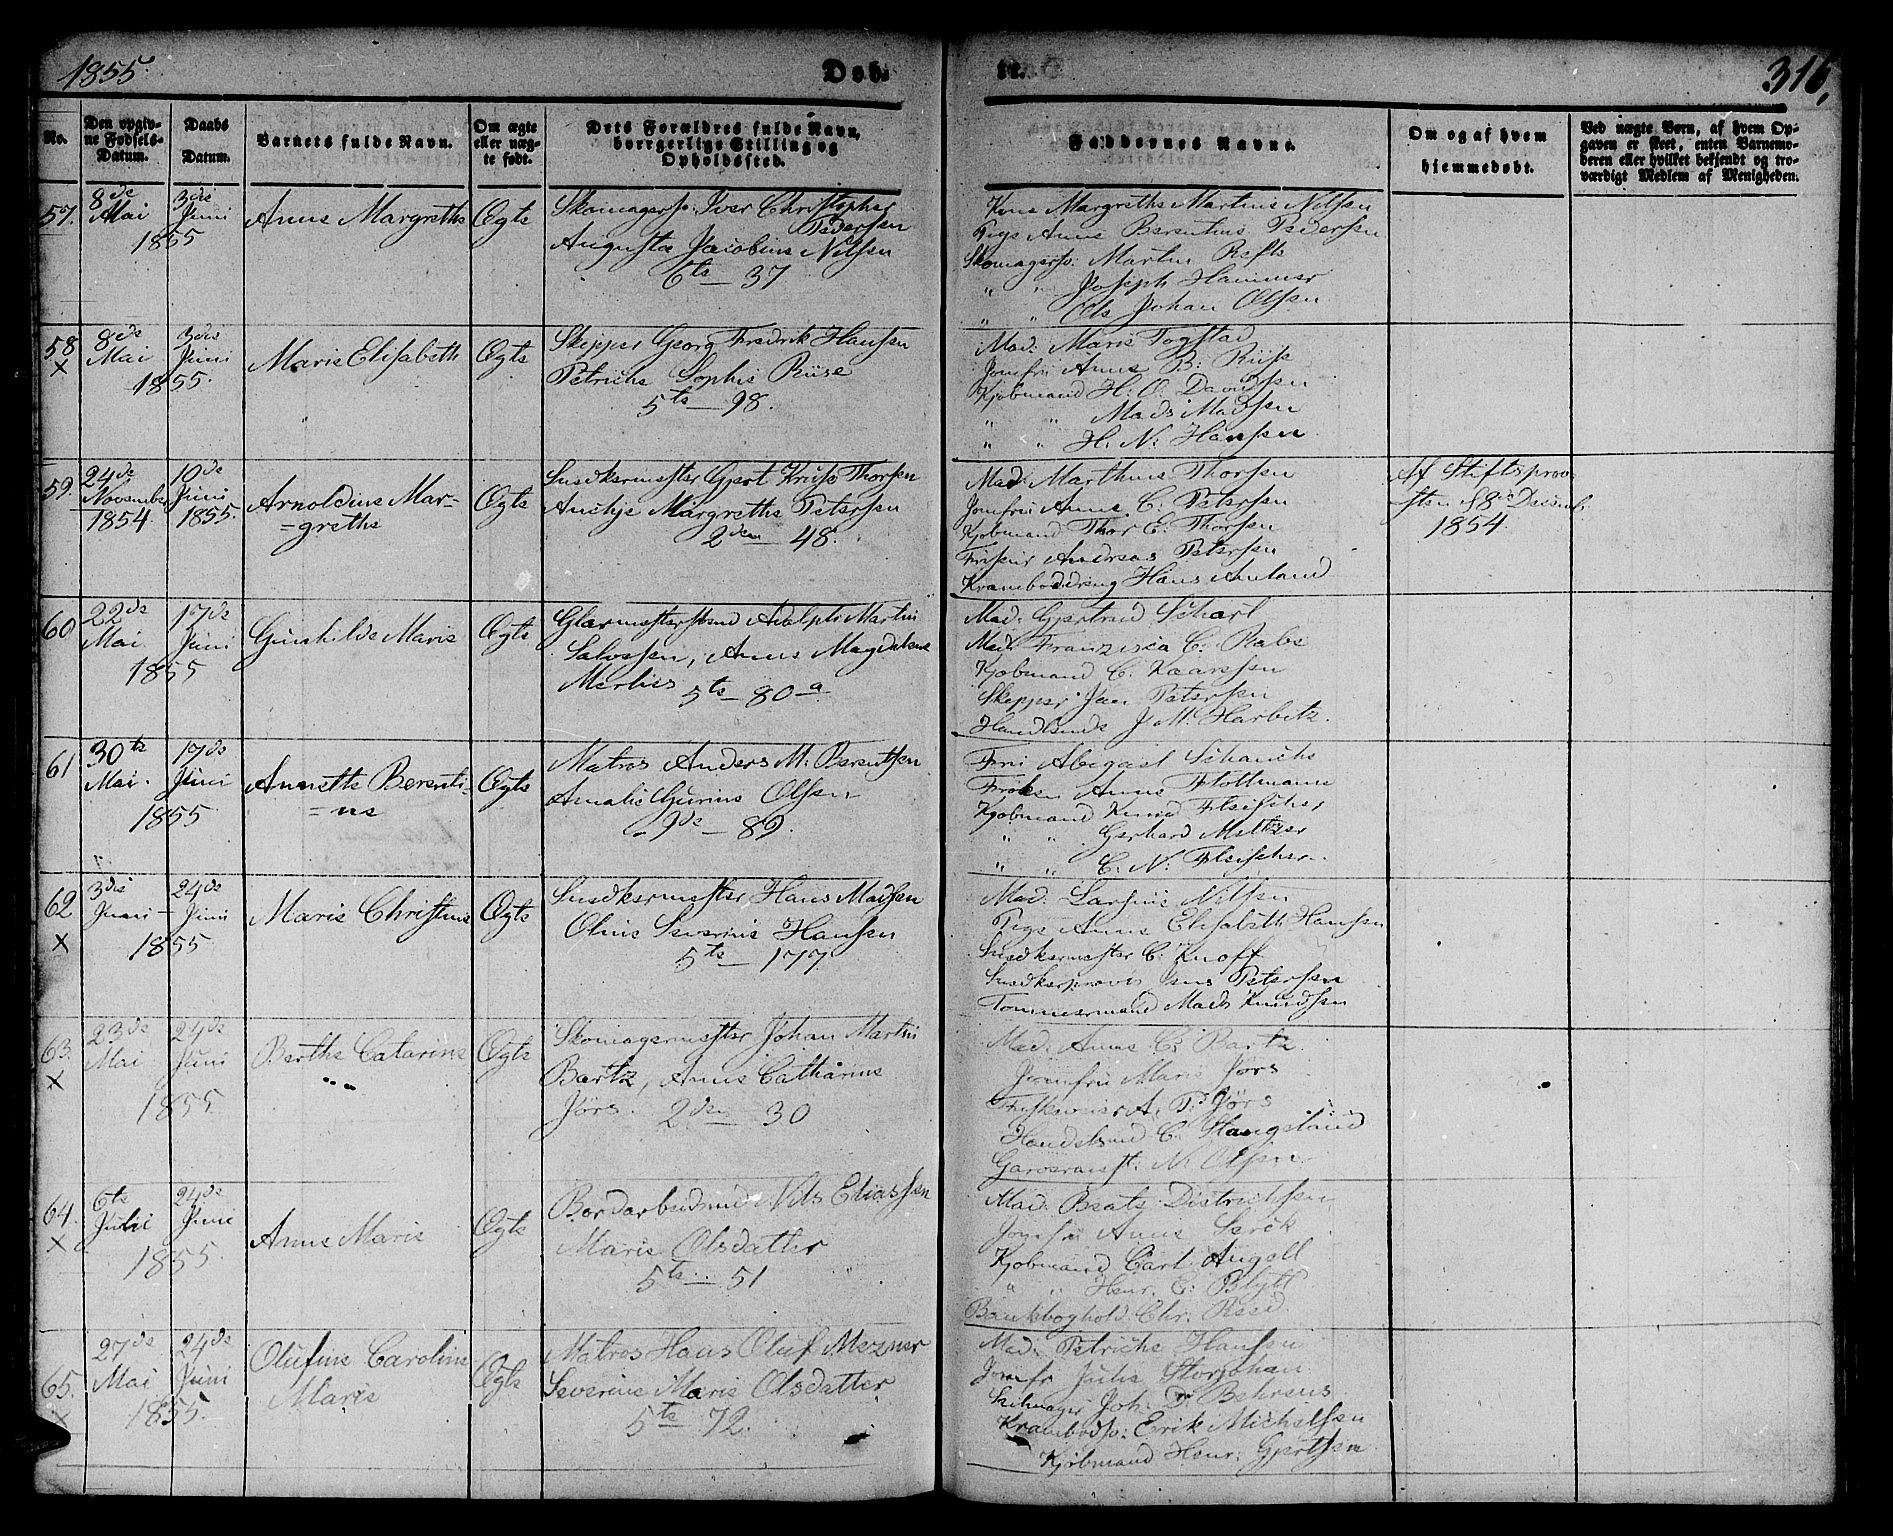 1855.
Døb-
te.
316,
No.
Den opgiv-
ne Fødsels-
Datum.
Daabs
Datum.
Barnets fulde Navn.
Om ægte
eller uæg-
te født.
Dets Forældres fulde Navn,
borgerlige Stilling og
Opholdssted.
Faddernes Navne.
Om og af hvem
hjemmedøbt.
Ved uægte Børn, af hvem Op-
gaven er skeet, enten Barnemo-
deren eller hvilket bekjendt og tro-
værdigt Medlem af Menigheden.
57.
8de
Mai
3die
Juni
1855
Anne Margrethe
Ægte
Skomagersv. Iver Christopher
Pedersen
Augusta Jacobine Nilsen
6te — 37
Kone Margrethe Martine Nilsen
Pige Anne Berentine Pedersen
Skomagersv. Martin
" " Joseph Hammer
" " Ole Johan Olsen
58
X
8de
Mai
3die
Juni
1855.
Marie Elisabeth
Ægte
Skipper Georg Fredrik Hansen
Petriche Sophie Riise
5te — 98.
Mad. Marie Fogstad
Jomfru Anne B. Riise
Kjøbmand H. O. Davidsen
" " Mads Madsen
" " H. N. Hansen
59.
24de
November
1854.
10de
Juni
1855.
Arnoldine Mar-
=grethe
Ægte
Snedkermester Gjert Kruse Thorsen
Margrethe Petersen
2den — 48.
Mad. Marthine Thorsen
Jomfru Anne C. Petersen
Kjøbmand Thor E. Thorsen
Andreas Petersen
Kramboddreng Hans Amland
Af Stiftsprov-
sten 8de Decemb.
1854
60
22de
Mai
17de
Juni
1855
Gunhilde Marie
Ægte
Glarmestersvend Adolph Martin
Salvesen, Anne Magdalene
5te — 80 a
Mad. Gjertrud Scharl
Mad. Franzisca C. Rabe
Kjøbmand C. Kaarsen
Skipper Jan Petersen
J. M. Harbitz.
61
30te
Mai.
17de
Juni
1855
Annette Berenti-
=ne
Ægte
Matros Anders M. Berentsen
Amalie Gurine Olsen
9de — 89.
Fru Abegael Schanche
Frøken Anne Flottmann
Kjøbmand Knud Fleischer
" " Gerhard Meltzer
" " C. N. Fleischer.
62
X
3die
Juni
24de
Juni
1855
Marie Christine
Ægte
Snedkermester Hans Madsen
Oline Severine Hansen
5te — 177.
Mad. Nilsen
Pige Anne Elisabeth Hansen
Snedkermester C. Knoff
Jens Petersen
Tømmermand Mads Knudsen
63.
X
23de
Mai
24de
Juni
1855
Berthe Catarine
Ægte
Skomagermester Johan Martin
Bartz, Anne Catharine
Jörs. 2den — 30
Mad. Anne C. Bartz.
Jomfru Marie Jörs
A. P. Jörs
C. Stangeland
N. Olsen
64.
X
6te
24de
Juni
1855.
Anne Marie
Ægte
Nils Eliassen
Marie Olsdatter
5te — 51
Mad. Beate Dietrichsen
Jomfru Anne
Kjøbmand Carl Angell
" " Henr. C. Blytt
Bankboghold. Chr.
65.
X
27de
Mai
24de
Juni
1855.
Olufine Caroline
Marie
Ægte
Matros Hans Oluf Mezner
Severine Marie Olsdatter
5te — 72.
Mad. Petriche Hansen
Jomfr. Julie Storjohan
Seilmager Joh. D. Behrens
Krambodsv. Erik Michelsen
Kjøbmand Henr. Gjertsen